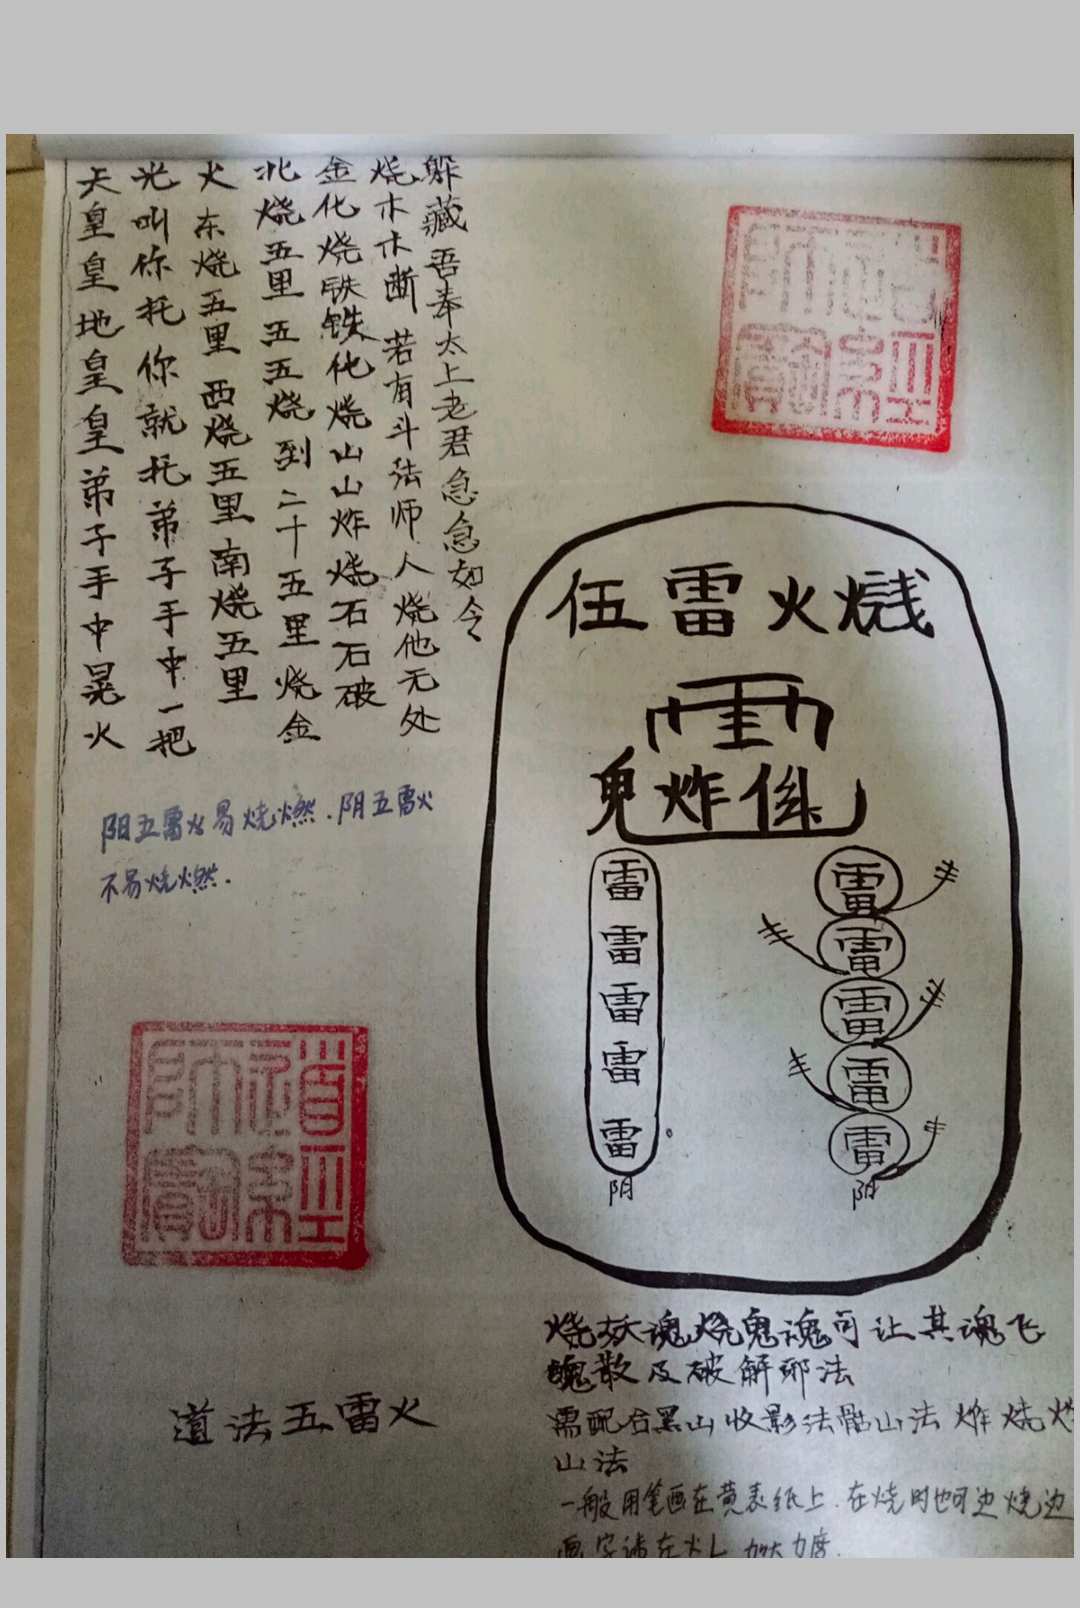 天皇皇地皇皇弟子手中晃火
光叫你托你就托弟子手中一把
火东烧五里西烧五里南烧五里
北烧五里五五烧到二十五里烧金
金化烧铁铁化烧山山炸烧石石破
烧木木断若有斗法师人烧他无处
躲藏吾奉太上老君急急如令
阳五雷火易烧燃.阴五雷火
不易烧燃.
道经师宝
伍雷火
鬼炸係
雷
雷
雷
雷
雷
阴
雷
雷
雷
雷
雷
阳
道经师宝
道法五雷火
烧妖魂烧鬼魂可让其魂飞
魄散及破解邪法
需配合黑山收影法骷山法炸烧
山法
一般用笔画在黄表纸上.在烧时也可边烧边
画字讳在火上加大力度.